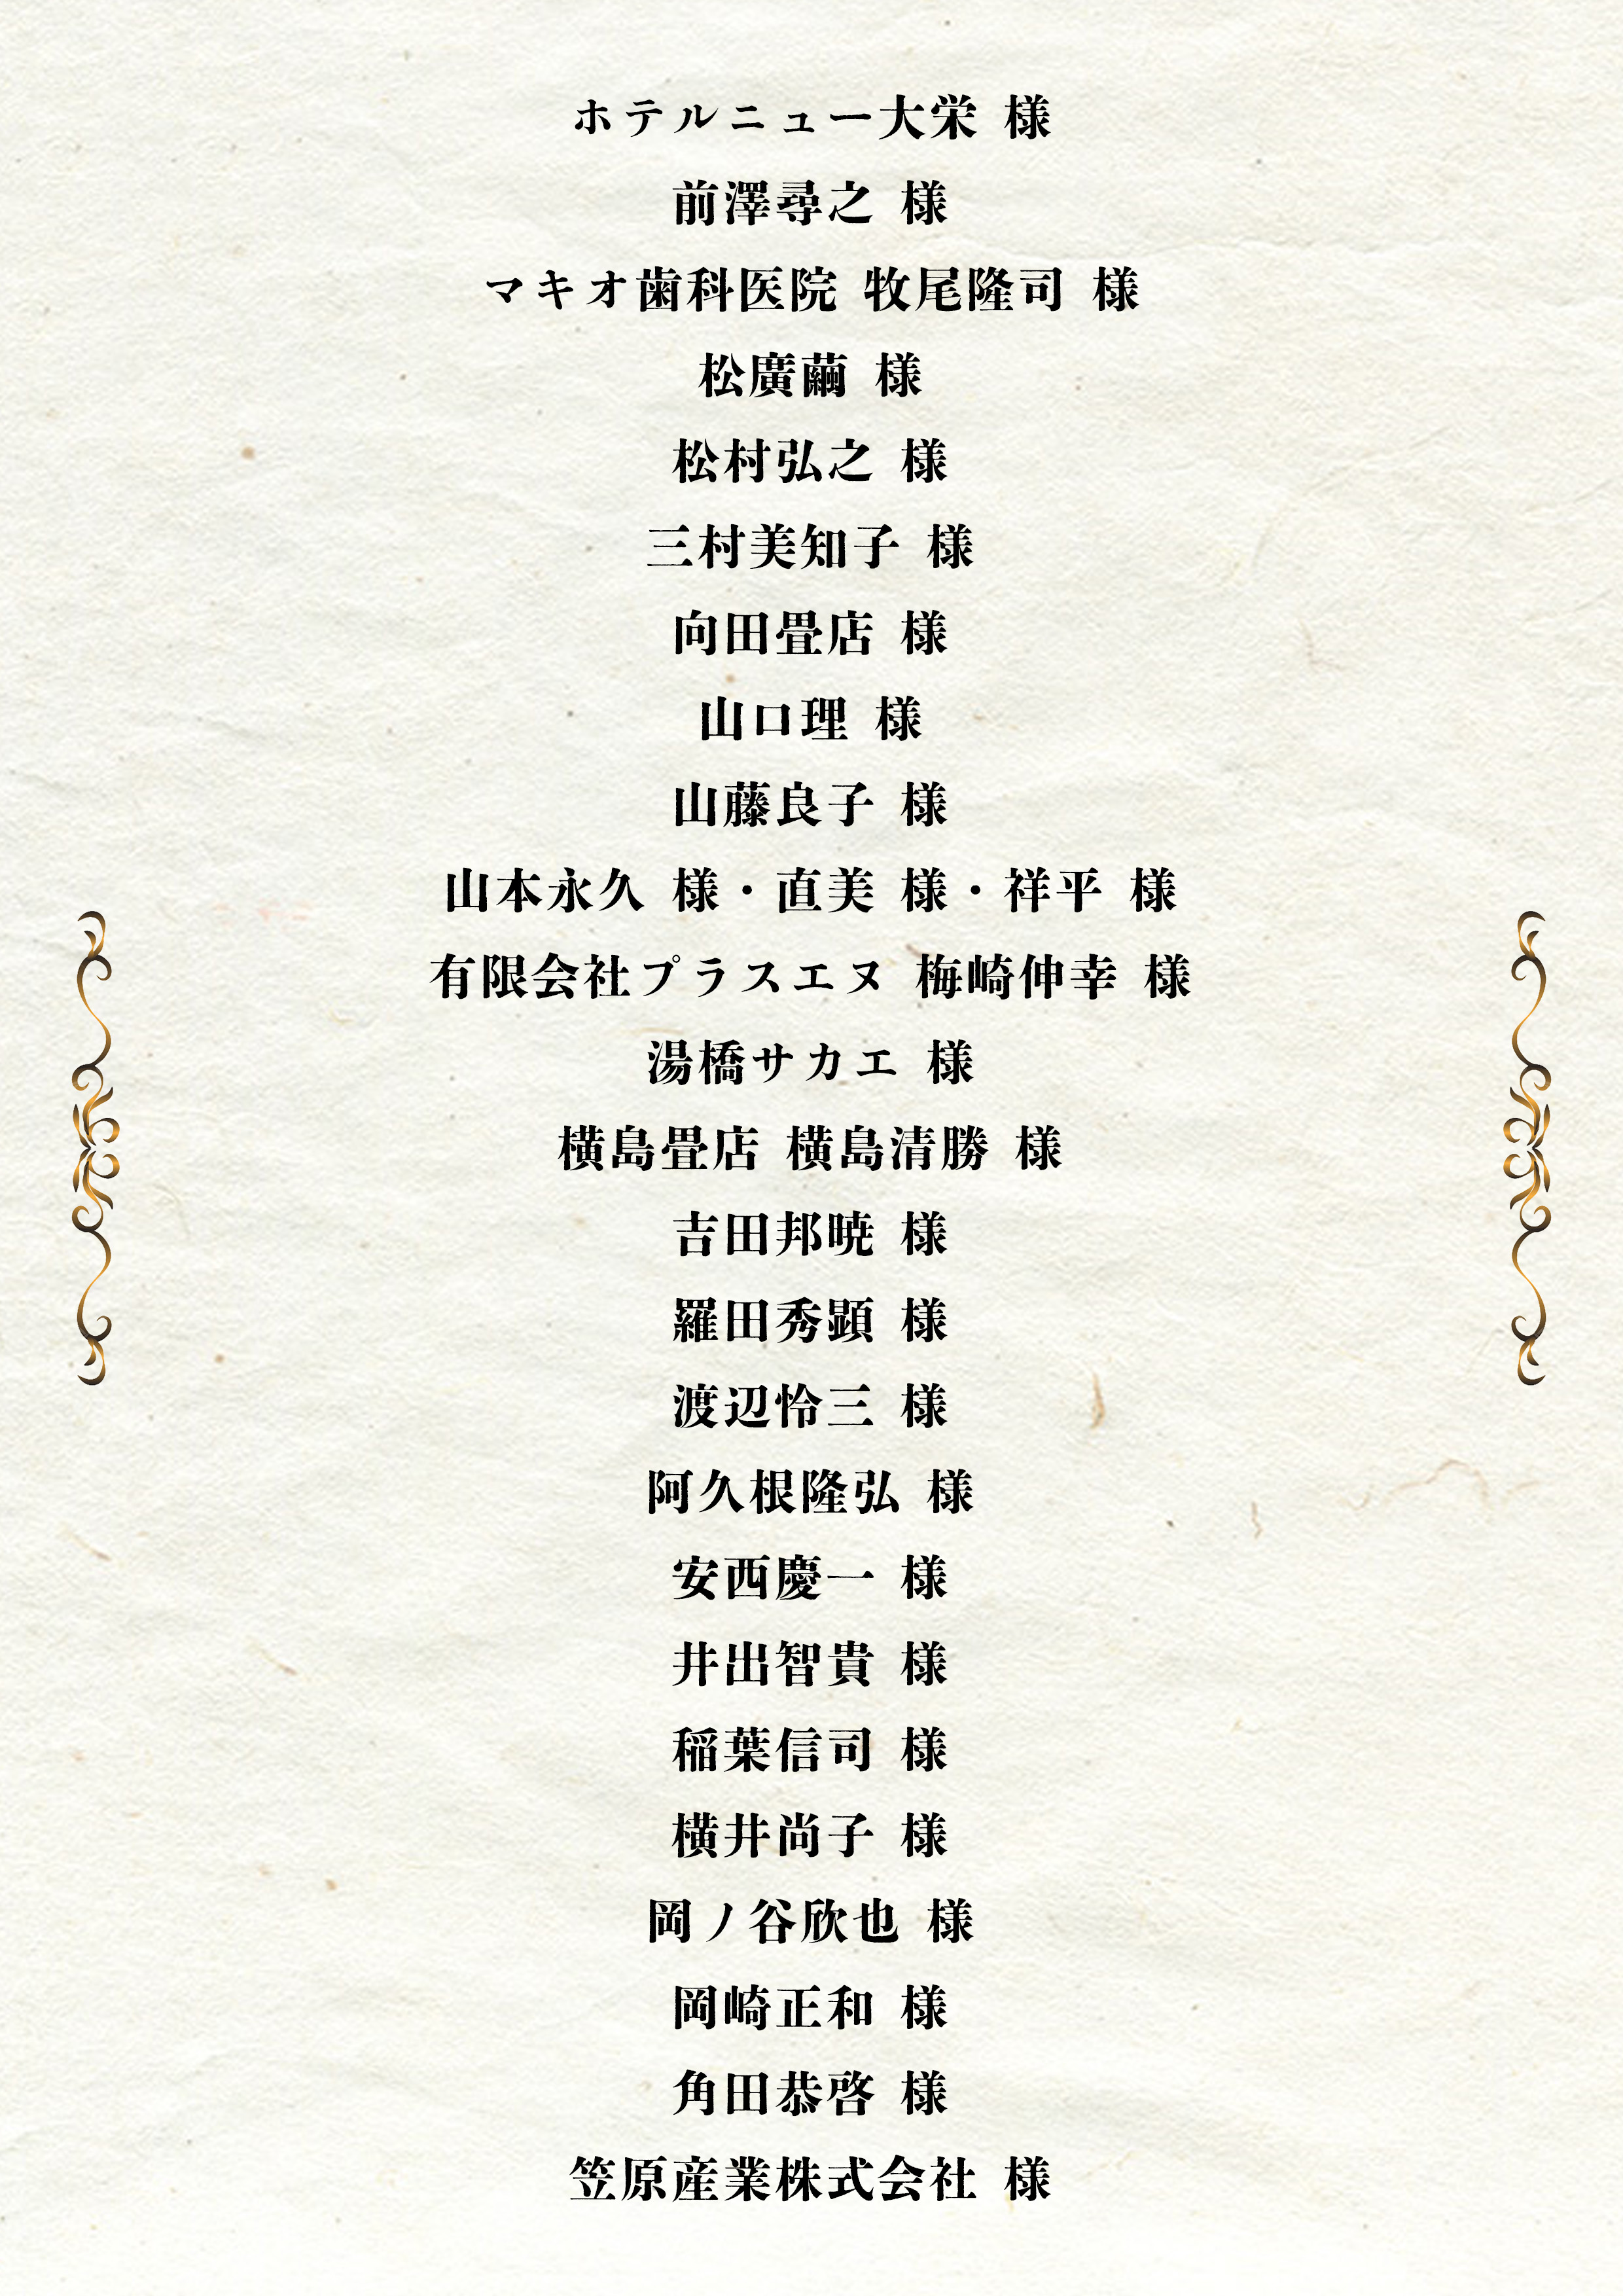 ホテルニュー大栄 様
前澤尋之 様
マキオ歯科医院 牧尾隆司 様
松廣繭 様
松村弘之 様
三村美知子 様
向田畳店 様
山口理 様
山藤良子 様
山本永久 様・直美 様・祥平 様
有限会社プラスエヌ 梅崎伸幸 様
湯橋サカエ 様
横島畳店 横島清勝 様
吉田邦暁 様
羅田秀顕 様
渡辺怜三 様
阿久根隆弘 様
安西慶一 様
井出智貴 様
稲葉信司 様
横井尚子 様
岡ノ谷欣也 様
岡崎正和 様
角田恭啓 様
笠原産業株式会社 様